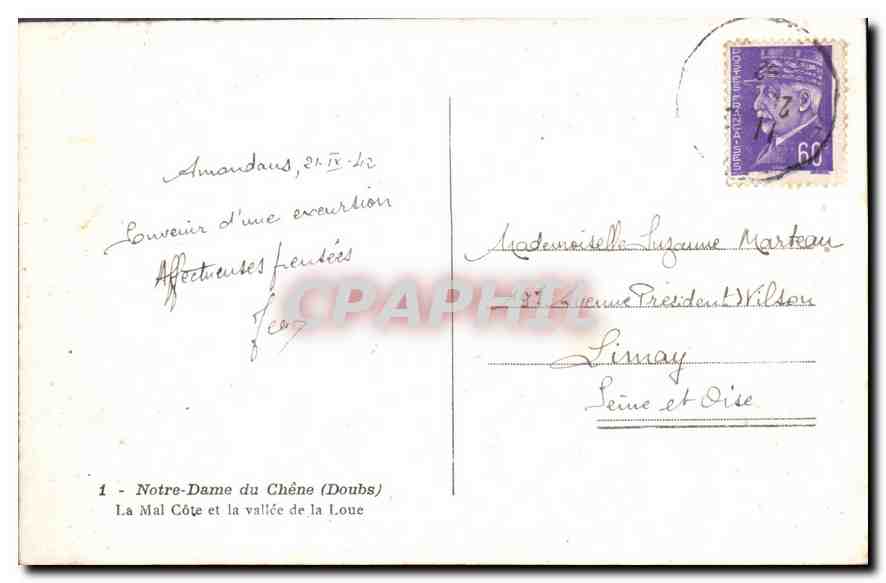 Amondans, 21-IX-42
Souvenir d'une excurtion
Affectueuses pensées
Jean
1 - Notre-Dame du Chêne (Doubs)
La Mal Côte et la vallée de la Loue
POSTES FRANÇAISES
60
Mademoiselle Suzanne Marteau
Avenue Président Wilson
Limay
Seine et Oise
CPAPHIL